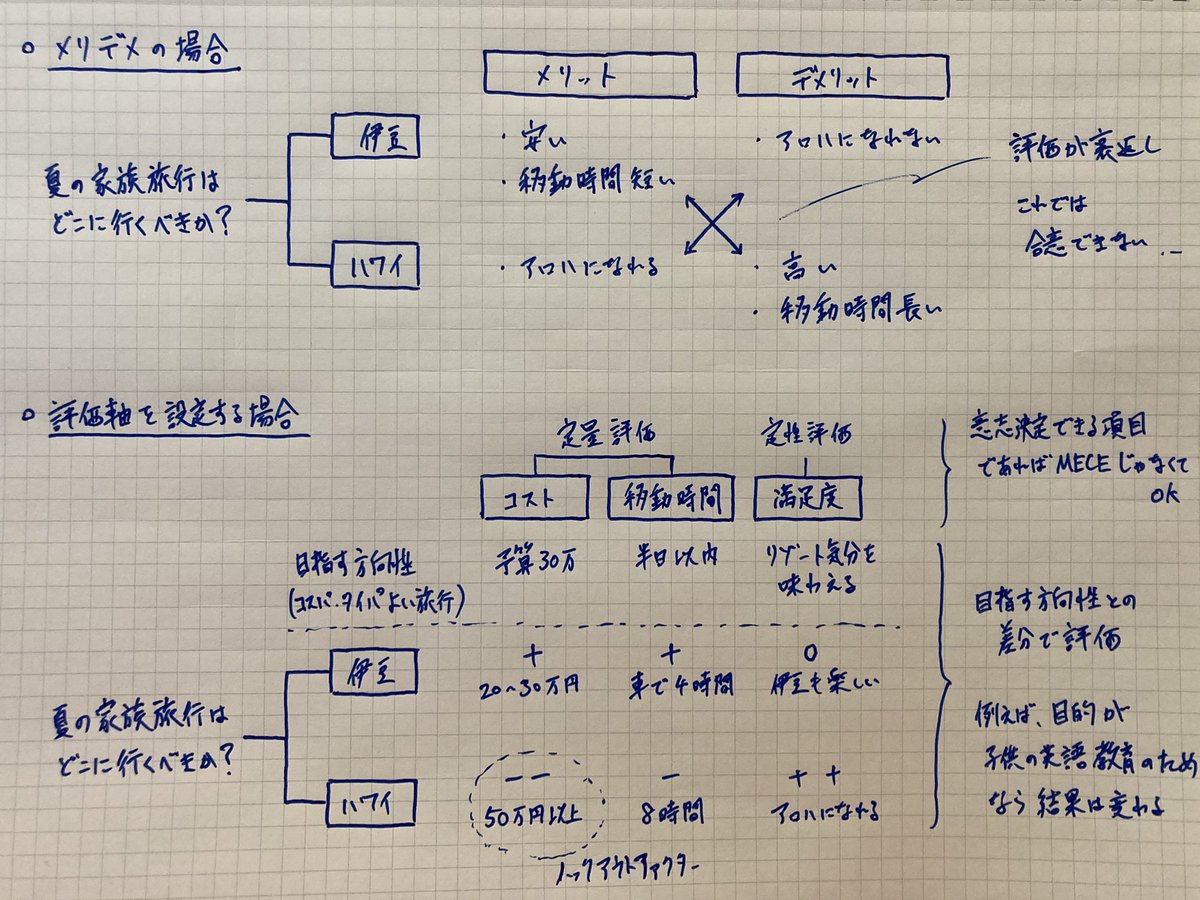 ○ メリデメの場合
メリット
デメリット
夏の家族旅行は
どこに行くべきか?
伊豆
・安い
・移動時間短い
・アロハになれない
ハワイ
・アロハになれる
・高い
・移動時間長い
評価が裏返し
これでは
合意できない...
○ 評価軸を設定する場合
定量評価
定性評価
コスト
移動時間
満足度
意志決定できる項目
であればMECEじゃなくて
OK
目指す方向性
(コスパ・タイパよい旅行)
予算30万
半日以内
リゾート気分を
味わえる
夏の家族旅行は
どこに行くべきか?
伊豆
+
20~30万円
+
車で4時間
○
伊豆も楽しい
ハワイ
--
50万円以上
-
8時間
++
アロハになれる
ノックアウトファクター
目指す方向性との
差分で評価
例えば、目的が
子供の英語教育のため
なら結果は変わる